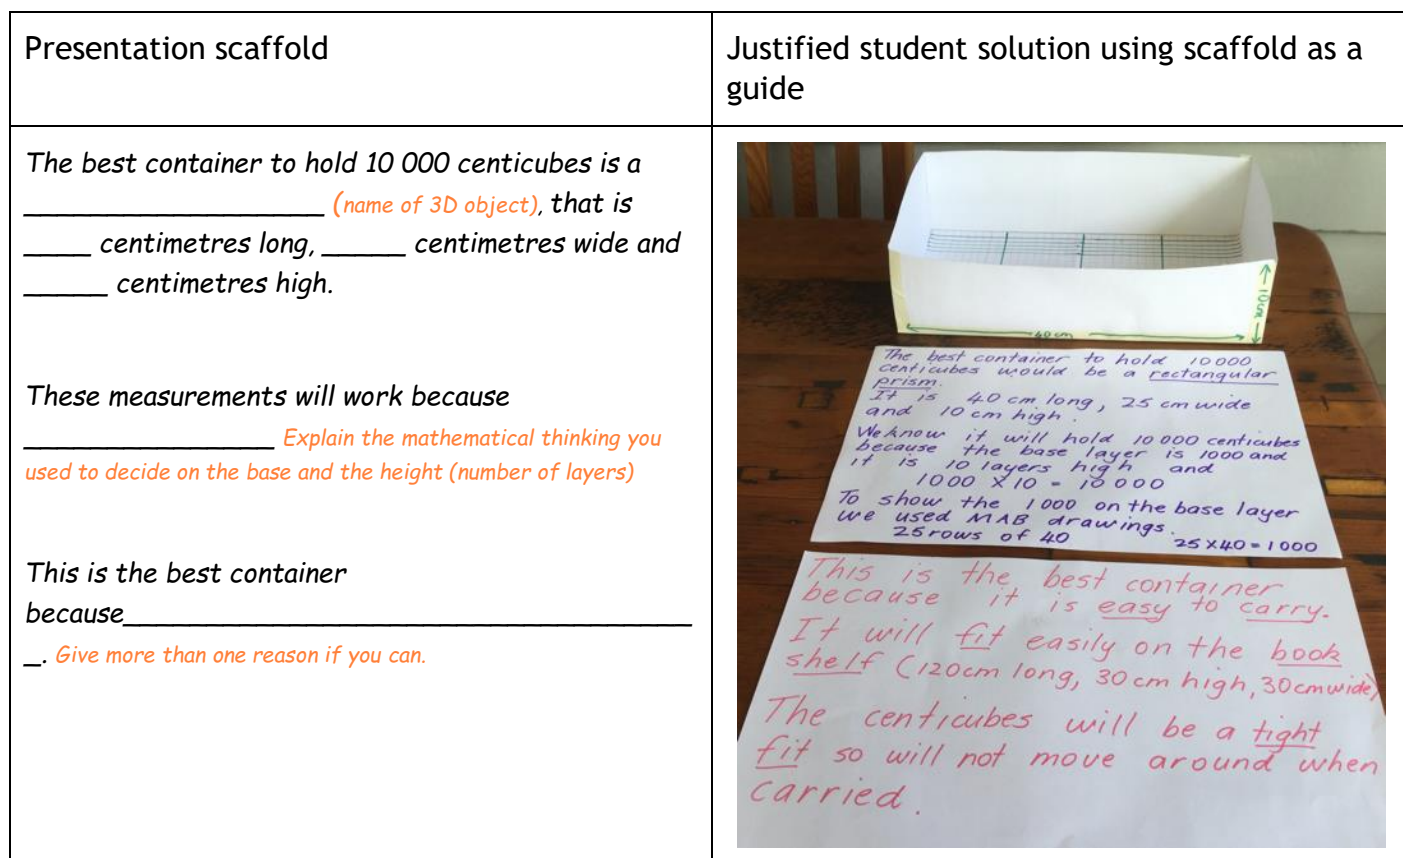 Presentation scaffold
Justified student solution using scaffold as a
guide
The best container to hold 10 000 centicubes is a
__________________ (name of 3D object), that is
____ centimetres long, _____ centimetres wide and
_____ centimetres high.
These measurements will work because
_______________ Explain the mathematical thinking you
used to decide on the base and the height (number of layers)
This is the best container
because__________________________________
_. Give more than one reason if you can.
10cm
40cm
The best container to hold 10000
centicubes would be a rectangular
prism.
It is 40 cm long, 25 cm wide
and 10 cm high.
We know it will hold 10 000 centicubes
because the base layer is 1000 and
it is 10 layers high and
1000 X 10 = 10 000
To show the 1000 on the base layer
we used MAB drawings.
25 rows of 40 25X40=1000
This is the best container
because it is easy to carry.
It will fit easily on the book
shelf (120cm long, 30 cm high, 30cmwide)
The centicubes will be a tight
fit so will not move around when
carried.